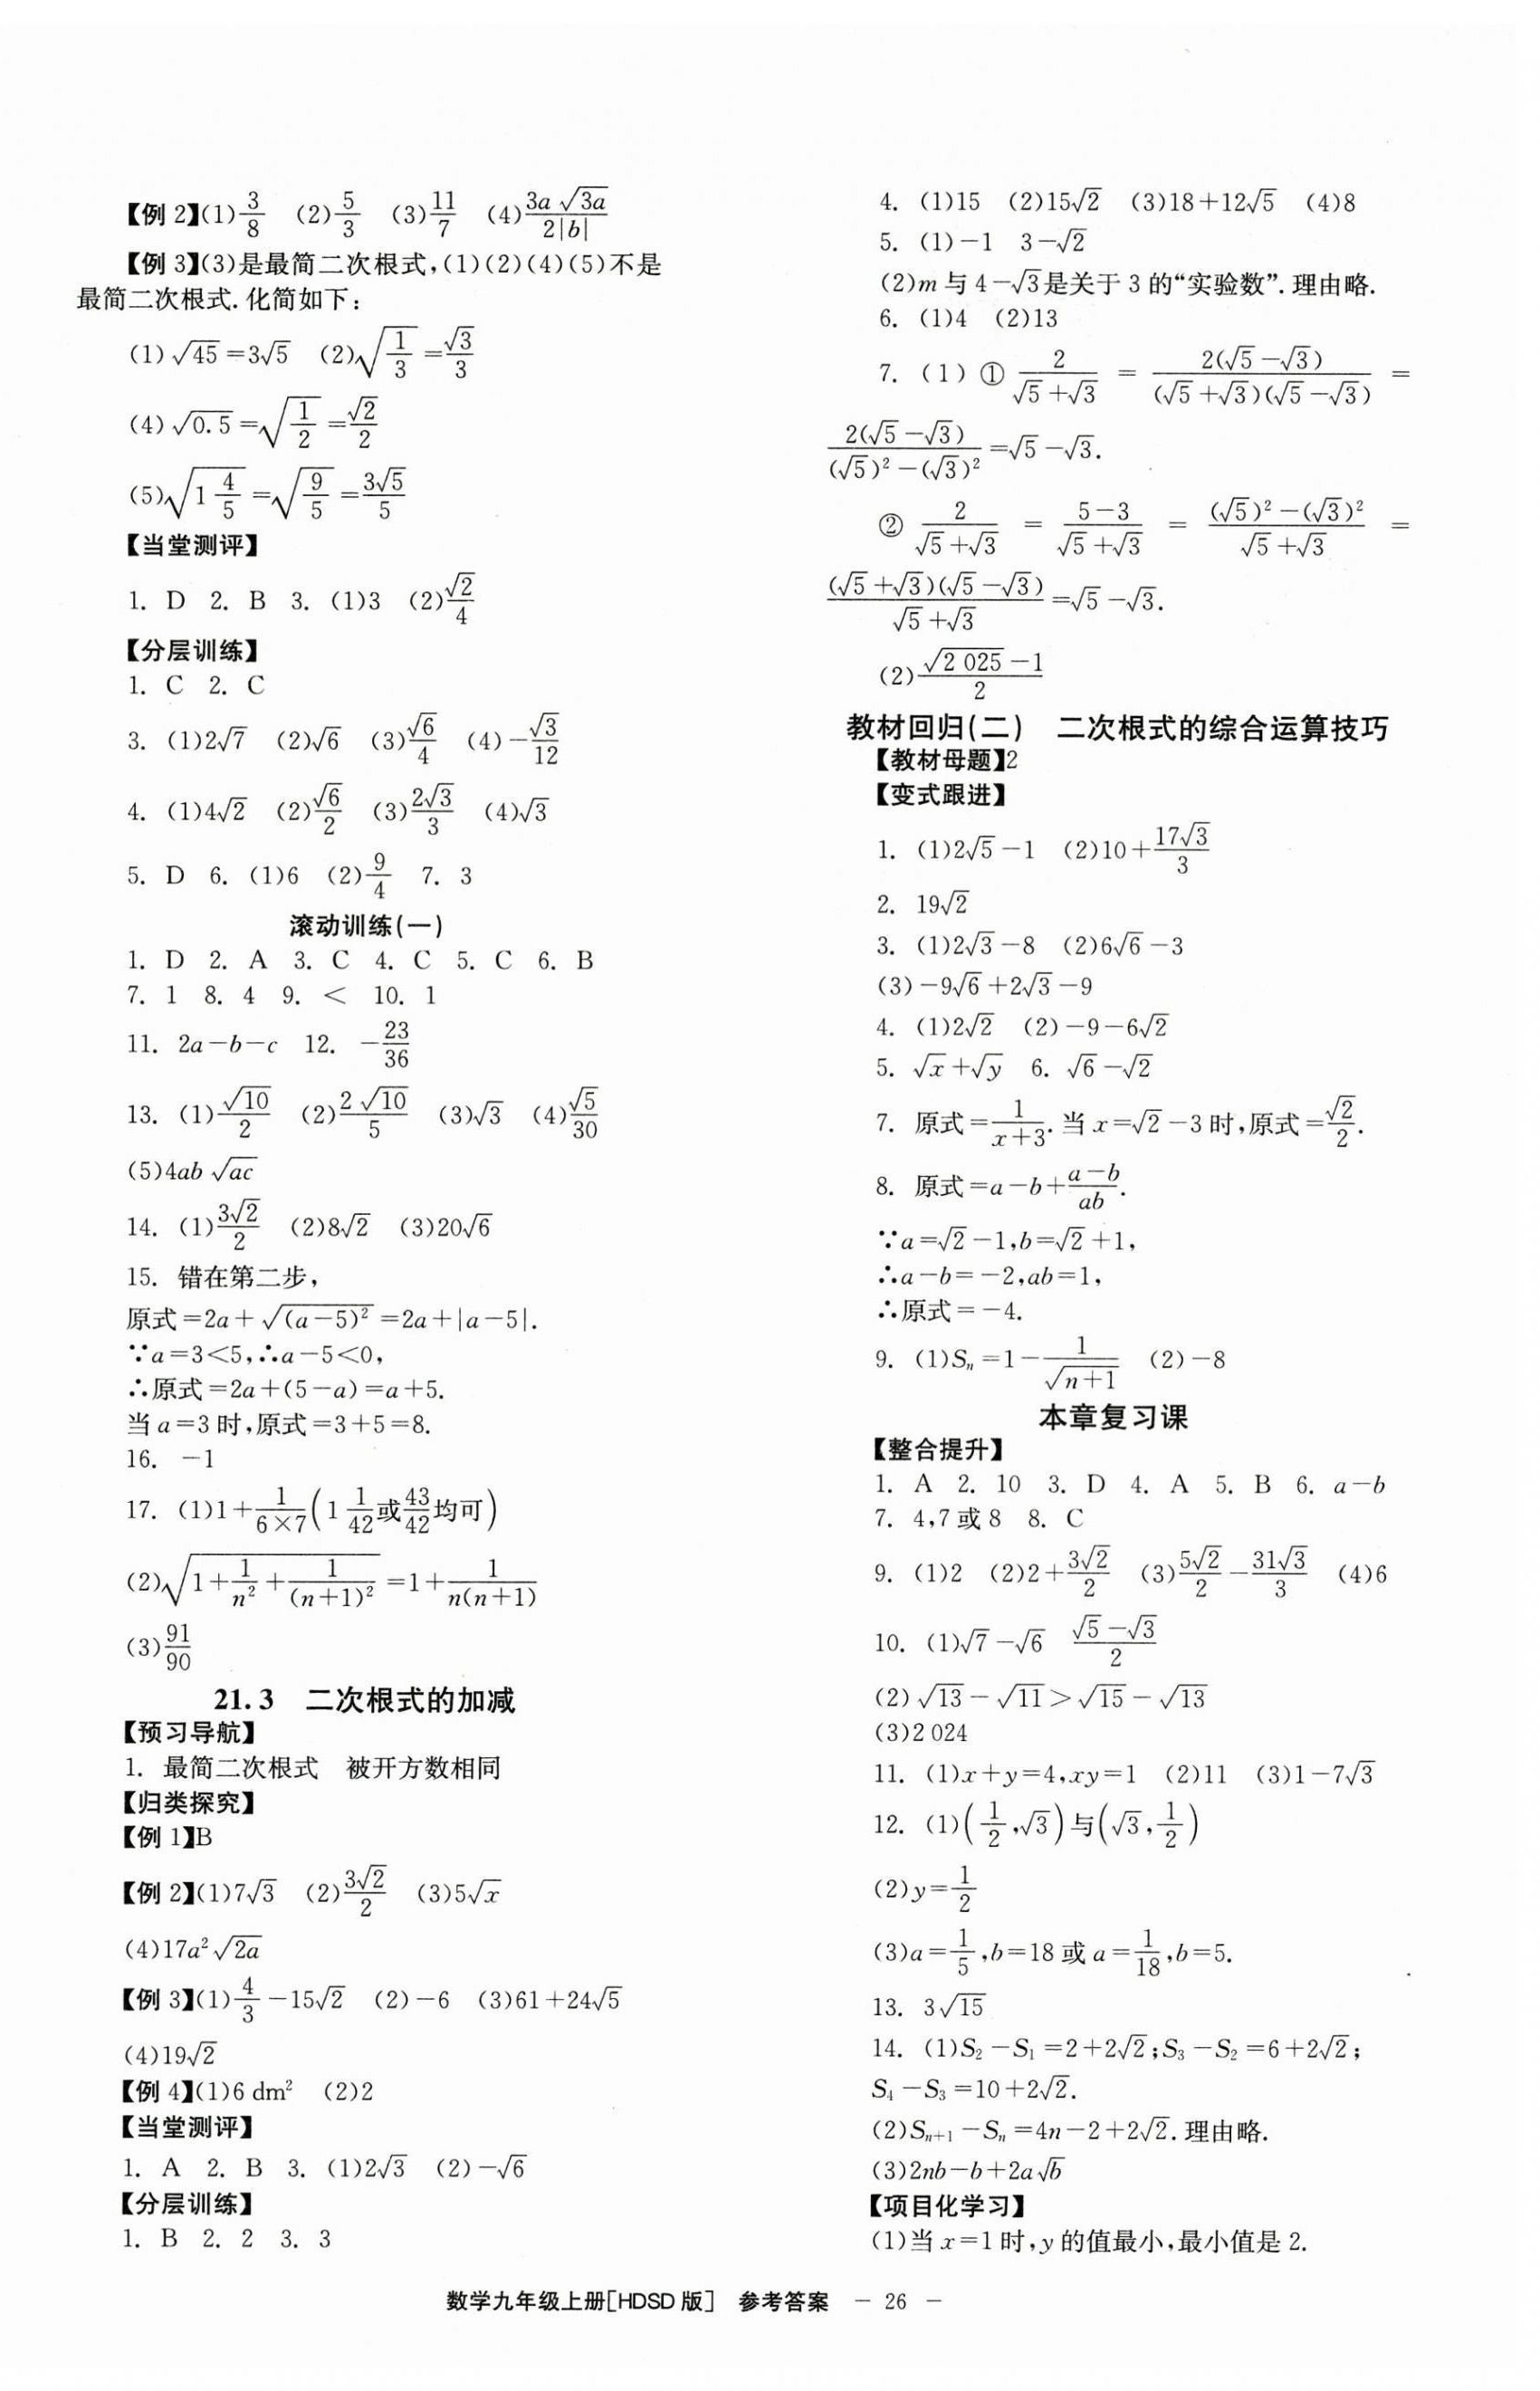 【例 2】(1)3/8 (2)5/3 (3)11/7 (4)3a√(3a)/(2|b|)
【例 3】(3)是最简二次根式,(1)(2)(4)(5)不是
最简二次根式. 化简如下:
(1)√45=3√5 (2)√(1/3)=√3/3
(4)√0.5=√(1/2)=√2/2
(5)√(1 4/5)=√(9/5)=3√5/5
【当堂测评】
1. D 2. B 3. (1)3 (2)√2/4
【分层训练】
1. C 2. C
3. (1)2√7 (2)√6 (3)√6/4 (4)-√3/12
4. (1)4√2 (2)√6/2 (3)2√3/3 (4)√3
5. D 6. (1)6 (2)9/4 7. 3
滚动训练(一)
1. D 2. A 3. C 4. C 5. C 6. B
7. 1 8. 4 9. < 10. 1
11. 2a-b-c 12. -23/36
13. (1)√10/2 (2)2√10/5 (3)√3 (4)√5/30
(5)4ab√(ac)
14. (1)3√2/2 (2)8√2 (3)20√6
15. 错在第二步,
原式=2a+√((a-5)²)=2a+|a-5|.
∵a=3<5,∴a-5<0,
∴原式=2a+(5-a)=a+5.
当 a=3 时,原式=3+5=8.
16. -1
17. (1)1+1/(6×7)(1 1/42或43/42均可)
(2)√(1+1/n²+1/(n+1)²)=1+1/(n(n+1))
(3)91/90
21.3 二次根式的加减
【预习导航】
1. 最简二次根式 被开方数相同
【归类探究】
【例 1】B
【例 2】(1)7√3 (2)3√2/2 (3)5√x
(4)17a²√(2a)
【例 3】(1)4/3-15√2 (2)-6 (3)61+24√5
(4)19√2
【例 4】(1)6 dm² (2)2
【当堂测评】
1. A 2. B 3. (1)2√3 (2)-√6
【分层训练】
1. B 2. 2 3. 3
4. (1)15 (2)15√2 (3)18+12√5 (4)8
5. (1)-1 3-√2
(2)m 与 4-√3是关于 3 的“实验数”. 理由略.
6. (1)4 (2)13
7. (1)① 2/(√5+√3) = 2(√5-√3)/((√5+√3)(√5-√3)) =
2(√5-√3)/((√5)²-(√3)²)=√5-√3.
② 2/(√5+√3) = (5-3)/(√5+√3) = ((√5)²-(√3)²)/(√5+√3) =
(√5+√3)(√5-√3)/(√5+√3)=√5-√3.
(2)(√2 025-1)/2
教材回归(二) 二次根式的综合运算技巧
【教材母题】2
【变式跟进】
1. (1)2√5-1 (2)10+17√3/3
2. 19√2
3. (1)2√3-8 (2)6√6-3
(3)-9√6+2√3-9
4. (1)2√2 (2)-9-6√2
5. √x+√y 6. √6-√2
7. 原式=1/(x+3). 当 x=√2-3 时,原式=√2/2.
8. 原式=a-b+(a-b)/ab.
∵a=√2-1,b=√2+1,
∴a-b=-2,ab=1,
∴原式=-4.
9. (1)Sₙ=1-1/√(n+1) (2)-8
本章复习课
【整合提升】
1. A 2. 10 3. D 4. A 5. B 6. a-b
7. 4,7 或 8 8. C
9. (1)2 (2)2+3√2/2 (3)5√2/2-31√3/3 (4)6
10. (1)√7-√6 (√5-√3)/2
(2)√13-√11>√15-√13
(3)2 024
11. (1)x+y=4,xy=1 (2)11 (3)1-7√3
12. (1)(1/2,√3)与(√3,1/2)
(2)y=1/2
(3)a=1/5,b=18 或 a=1/18,b=5.
13. 3√15
14. (1)S₂-S₁=2+2√2;S₃-S₂=6+2√2;
S₄-S₃=10+2√2.
(2)Sₙ₊₁-Sₙ=4n-2+2√2. 理由略.
(3)2nb-b+2a√b
【项目化学习】
(1)当 x=1 时,y 的值最小,最小值是 2.
数学九年级上册[HDSD 版] 参考答案 — 26 —